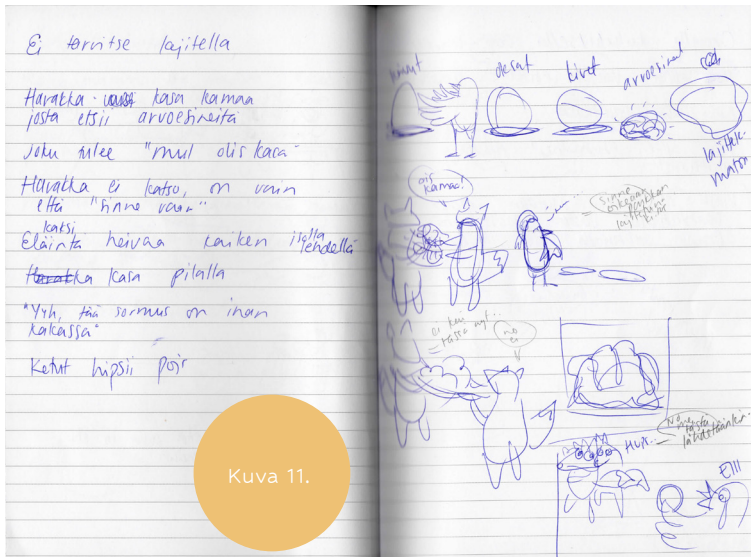 Ei tarvitse lajitella
Harakka kasa kamaa
josta etsii arvoesineitä
Joku tulee "mul olis kasa"
Harakka ei katso, on vain
että "sinne vaan"
kaksi
Eläintä heivaa kaiken isolla lehdellä
kasa pilalla
"Yyh, tää sormus on ihan
kakassa"
Ketut hipsii pois
Kuva 11.
oksat kivet arvoesineet
lajittele-
maton
ois
kamaa!
Sinne
oikeaan
ei kai
tässä nyt...
no
ei
Hups...
No
me
tästä
lähdetäänkin
EIII